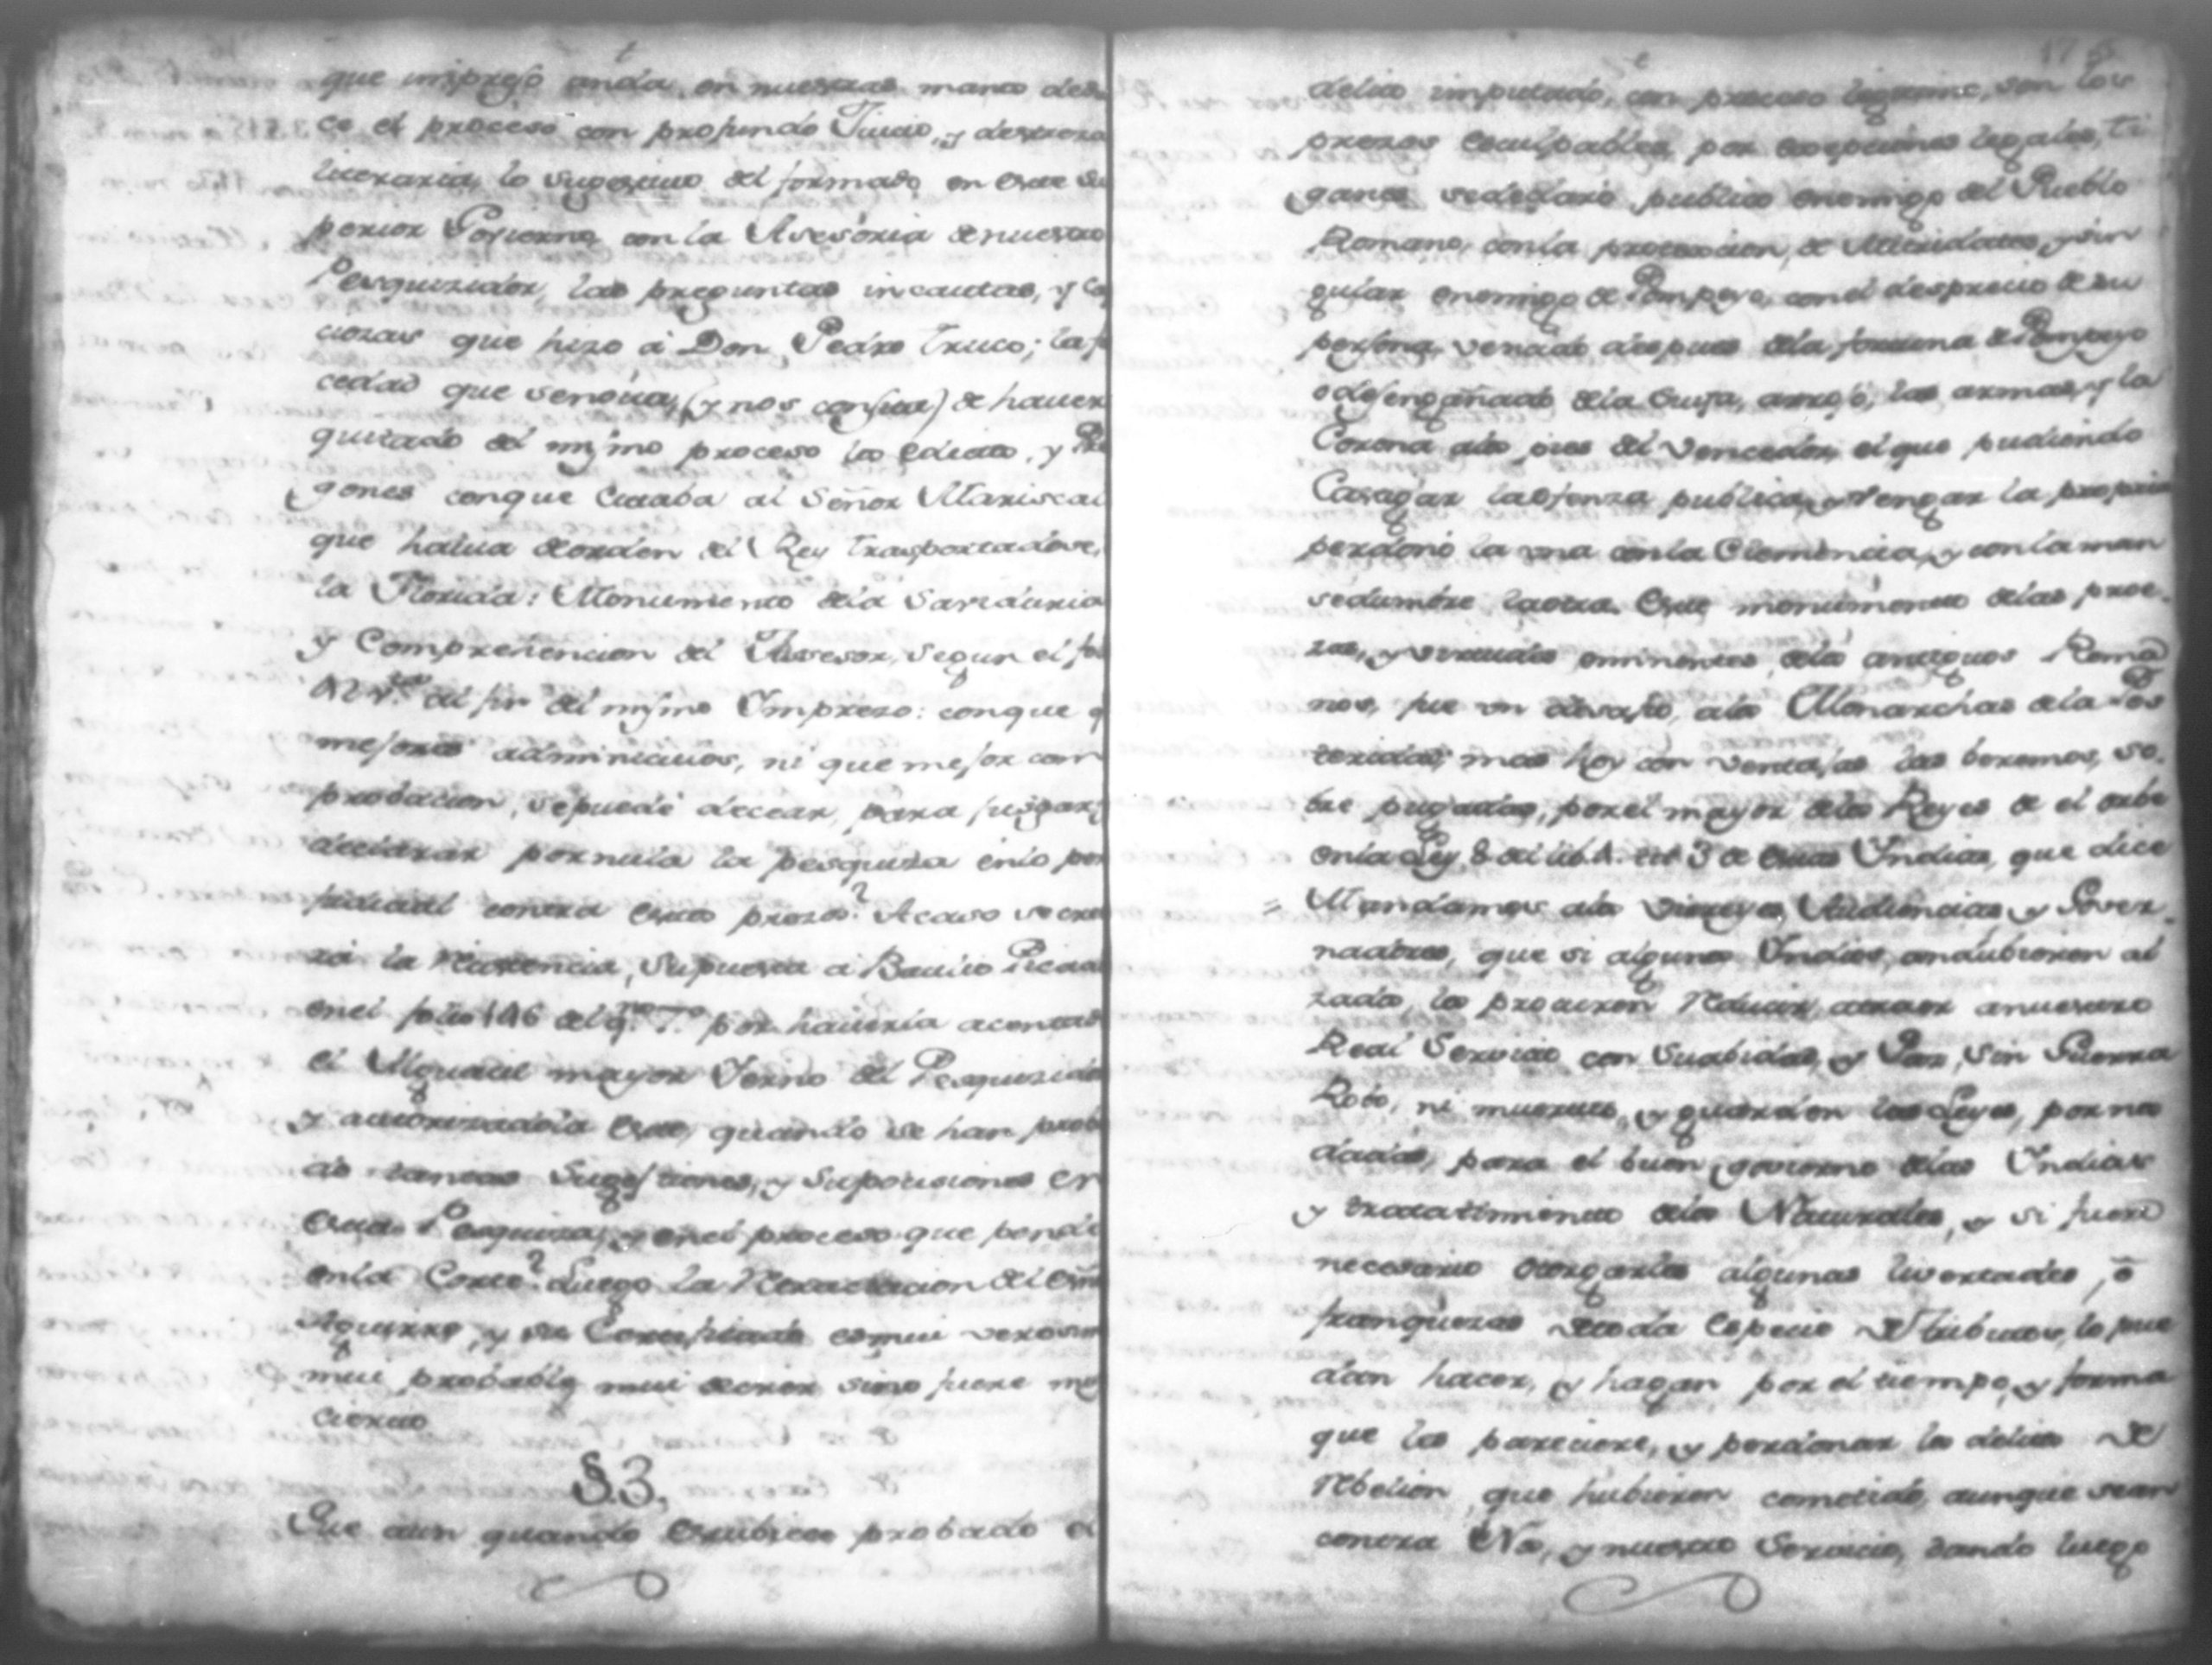 que impreso anda en nuestras manos des
ce el proceso con profundo Juicio, y destreza
literaria, lo sugestivo del formado en este Su
perior Govierno, con la Asesoria de nuestro
Pesquizidor, las preguntas incautas, y
ciozas que hizo á Don Pedro Truco; la
cedad que senotta, (y nos consta) de haver
quitado del mismo proceso los edictos, y Pre
gones conque Citaba al Señor Mariscal
que havia de orden del Rey trasportadose,
la Florida: Monumento dela Saviduria
y Comprehencion del Assesor, segun el fol
del fin del mismo Impreso: conque q
mejores adminiculos, ni que mejor com
probacion, sepuede decear, para jusgar,
declarar pornula la pesquiza enlo per
judicial contra estos prezos? Acaso se cree
rá la Renuencia, supuesta á
en el folio 146 del q.no T.o por haverla acentad
el Alguacil mayor Yerno del Pesquizidor
y autorizadola este, quando se han proba
do tantas Sugestiones, y Suposiciones en
esta Pesquiza, y enel proceso que pende
enla Corte? Luego la Retractacion del
Aguirre, y su Coretractado es mui verosim
mui probable, mui decreer, sino fuere mui
cierto
§ 3.
Que aun quando estubiese probado el
delito imputado, con proceso legitimo, son los
prezos esculpables, por excepciones legales, Ti
granes sedeclaró publico enemigo del Pueblo
Romano, conla proteccion, de Mitridates, y sin
gular enemigo de Pompeyo, con el desprecio de su
persona, vencido despues dela fortuna de Pompeyo
o desengañado dela Suya, arrojó, las armas, y la
Corona alos pies del Vencedor, el que pudiendo
Castigar la ofenza publica, y Vengar la propria
perdonó la una conla Clemencia, y conla man
sedumbre, la otra. Este monumento delas proe-
zas, y virtudes eminentes, delos antiguos Roma
nos, fue un desafio, alos Monarchas dela Pos
teridad; mas hoy con ventajas las veremos, so-
bre pujadas, porel mayor delos Reyes de el orbe
enla Ley 8 del lib. 4. tit 3 de estas Yndias, que dice
= Mandamos alos Virreyes, Audiencias, y Gover-
nadores, que si algunos Yndios, andubieren al
zados, los procuren Reducir, atraer anuestro
Real Servicio con suabidad, y Paz, sin Guerra
Robo, ni muertes, y guarden las Leyes, por nos
dadas, para el buen govierno delas Yndias
y tratatimiento delos Naturales, y si fuere
necesario otorgarles algunas livertades, ó
franquezas detoda especie de tributos, lo pue
dan hacer, y hagan por el tiempo, y forma
que les pareciere, y perdonar los delitos de
Rebelion, que hubieren cometido, aunque sean
contra Nos, y nuestro Servicio, dando luego